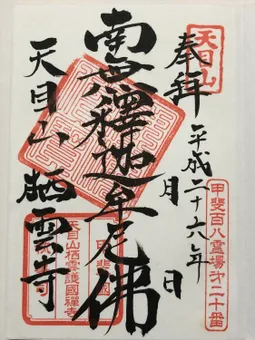 天目山
奉拝
平成二十六年
月
日
甲斐百八霊場第二十番
南無釋迦牟尼佛
天目山栖雲寺
天目山栖雲護國禪寺